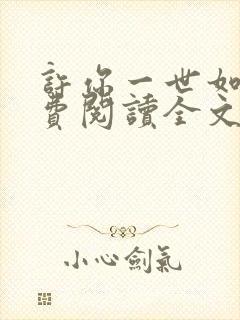 許你一世如
費閱讀全文
小心劍氣